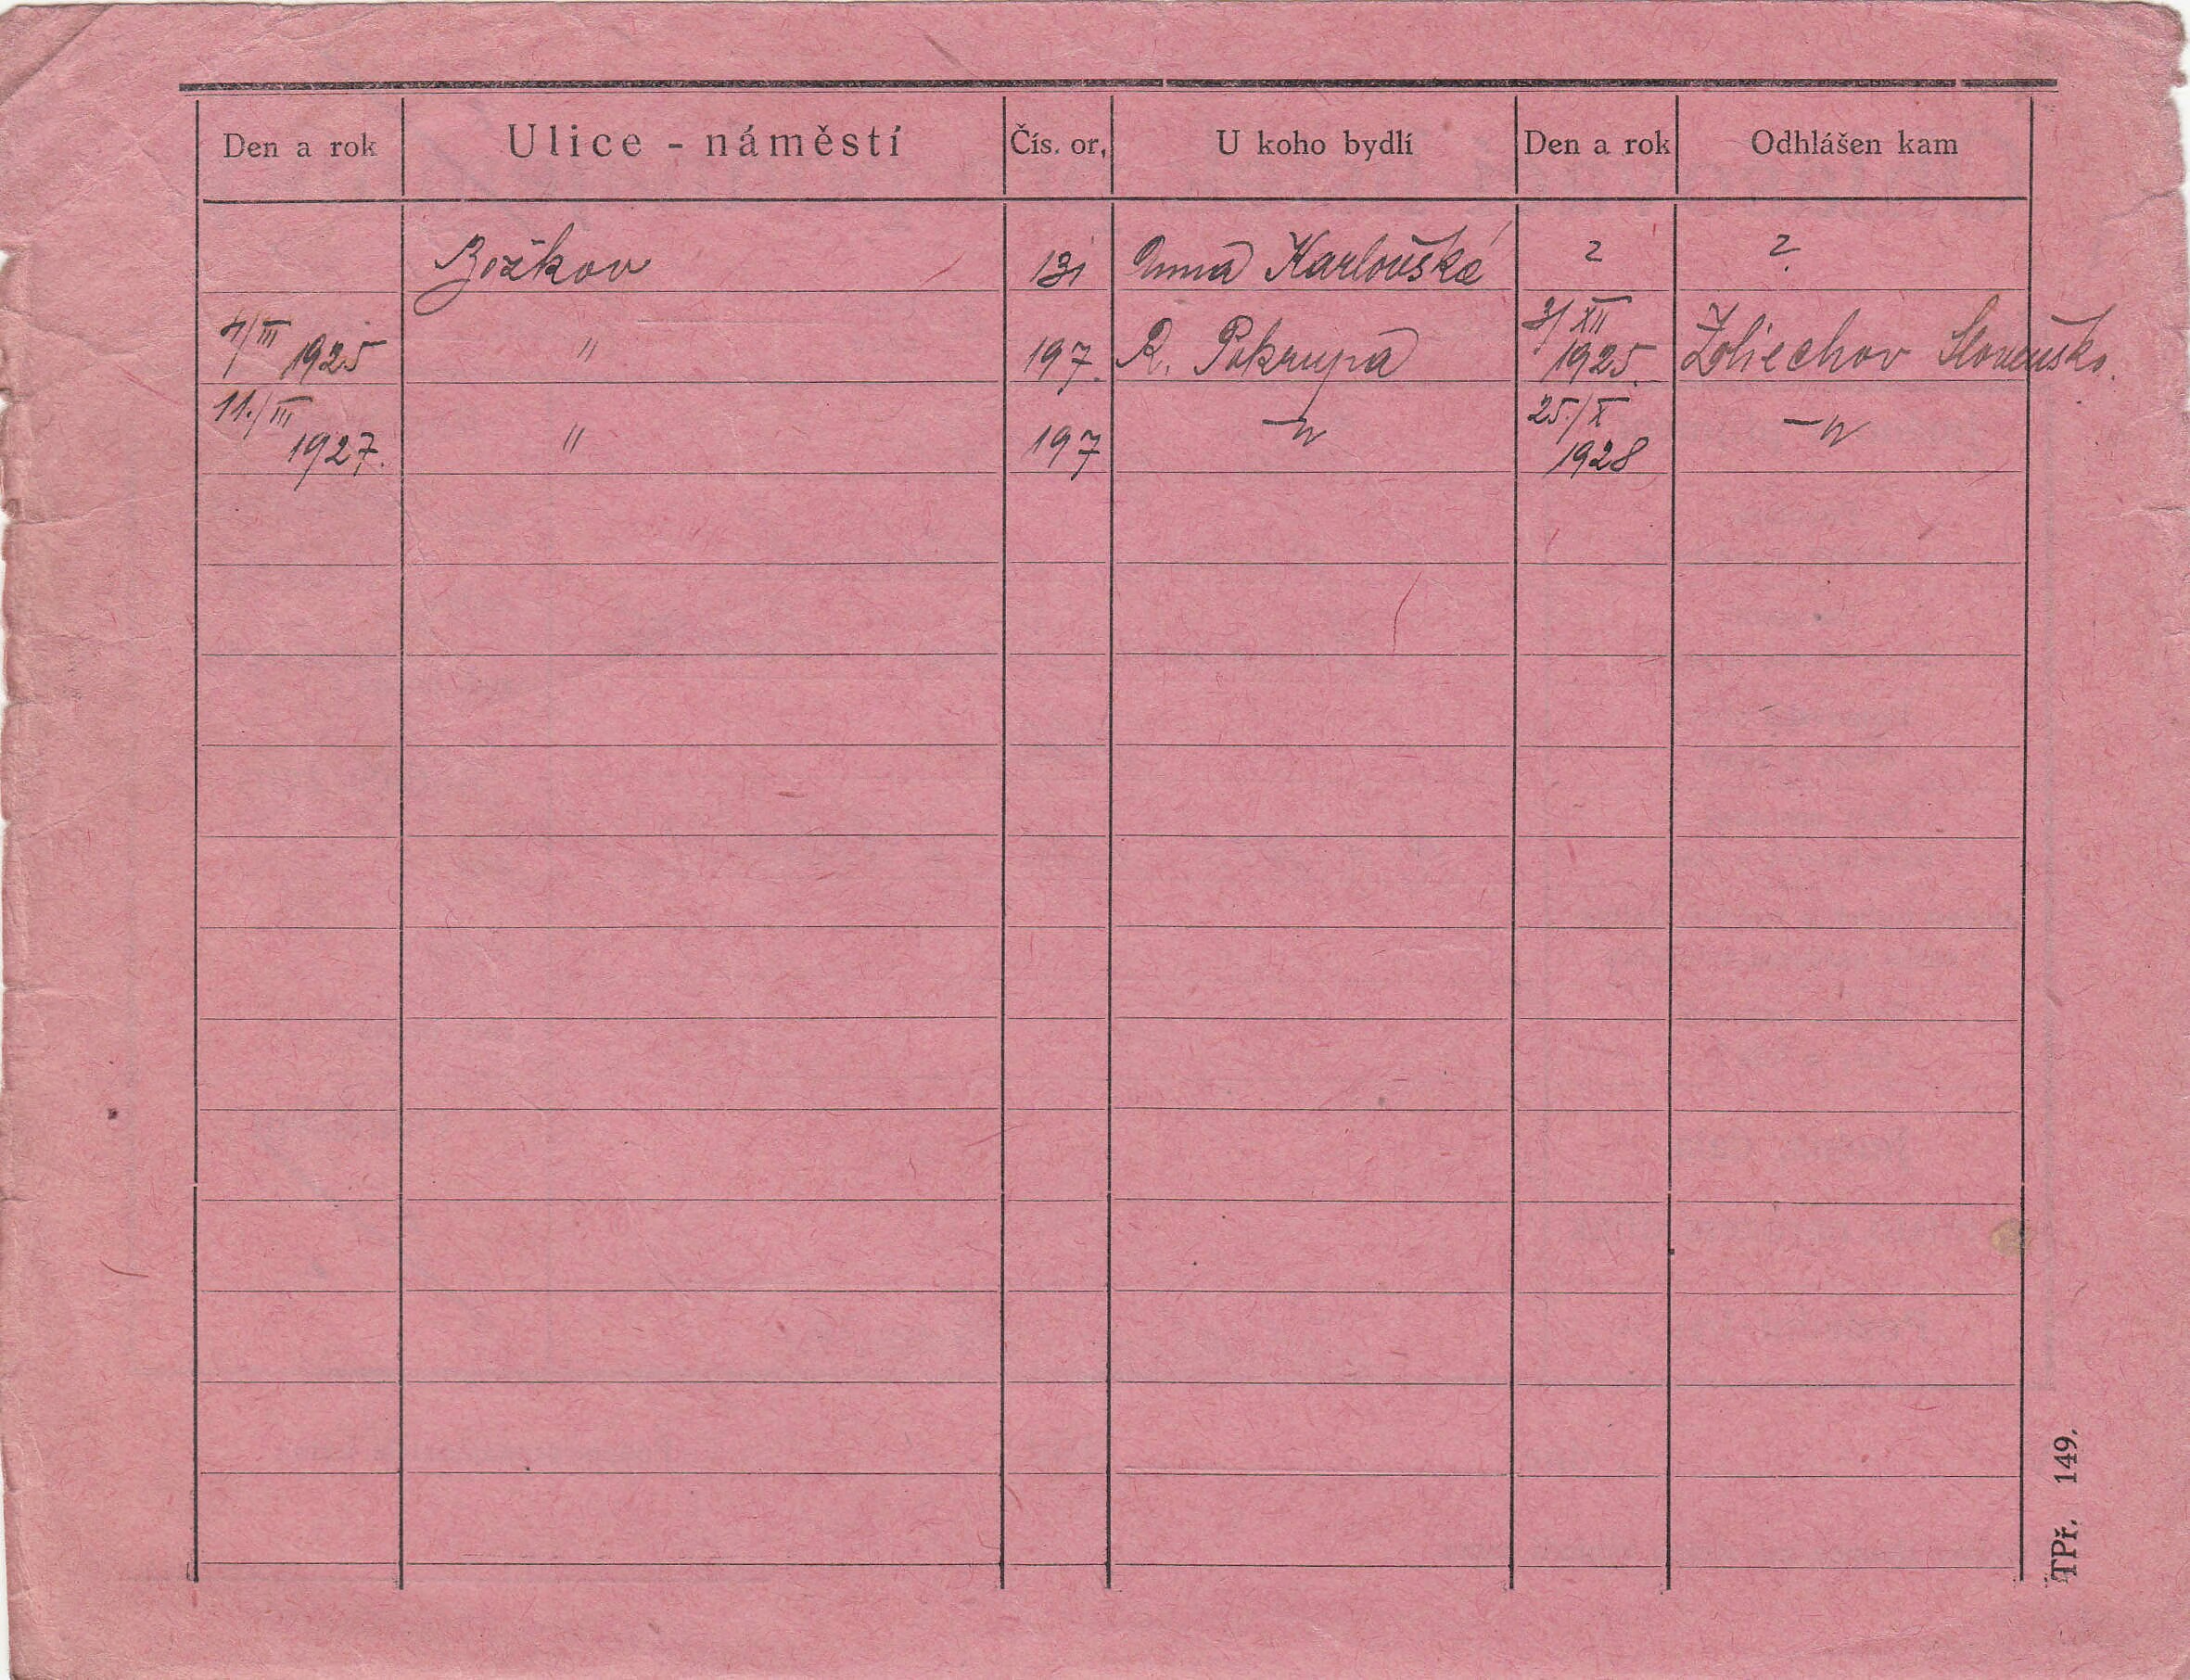 Den a rok Ulice - náměstí Čís. or, U koho bydlí Den a rok Odhlášen kam
Božkov 131 Anna Karlovská ? ?
4/III 1925 " 197. R. Pokrupa 3/XII 1925. Zliechov Slovensko.
11./III 1927. " 197 –"– 25./X 1928 –"–
TPř. 149.